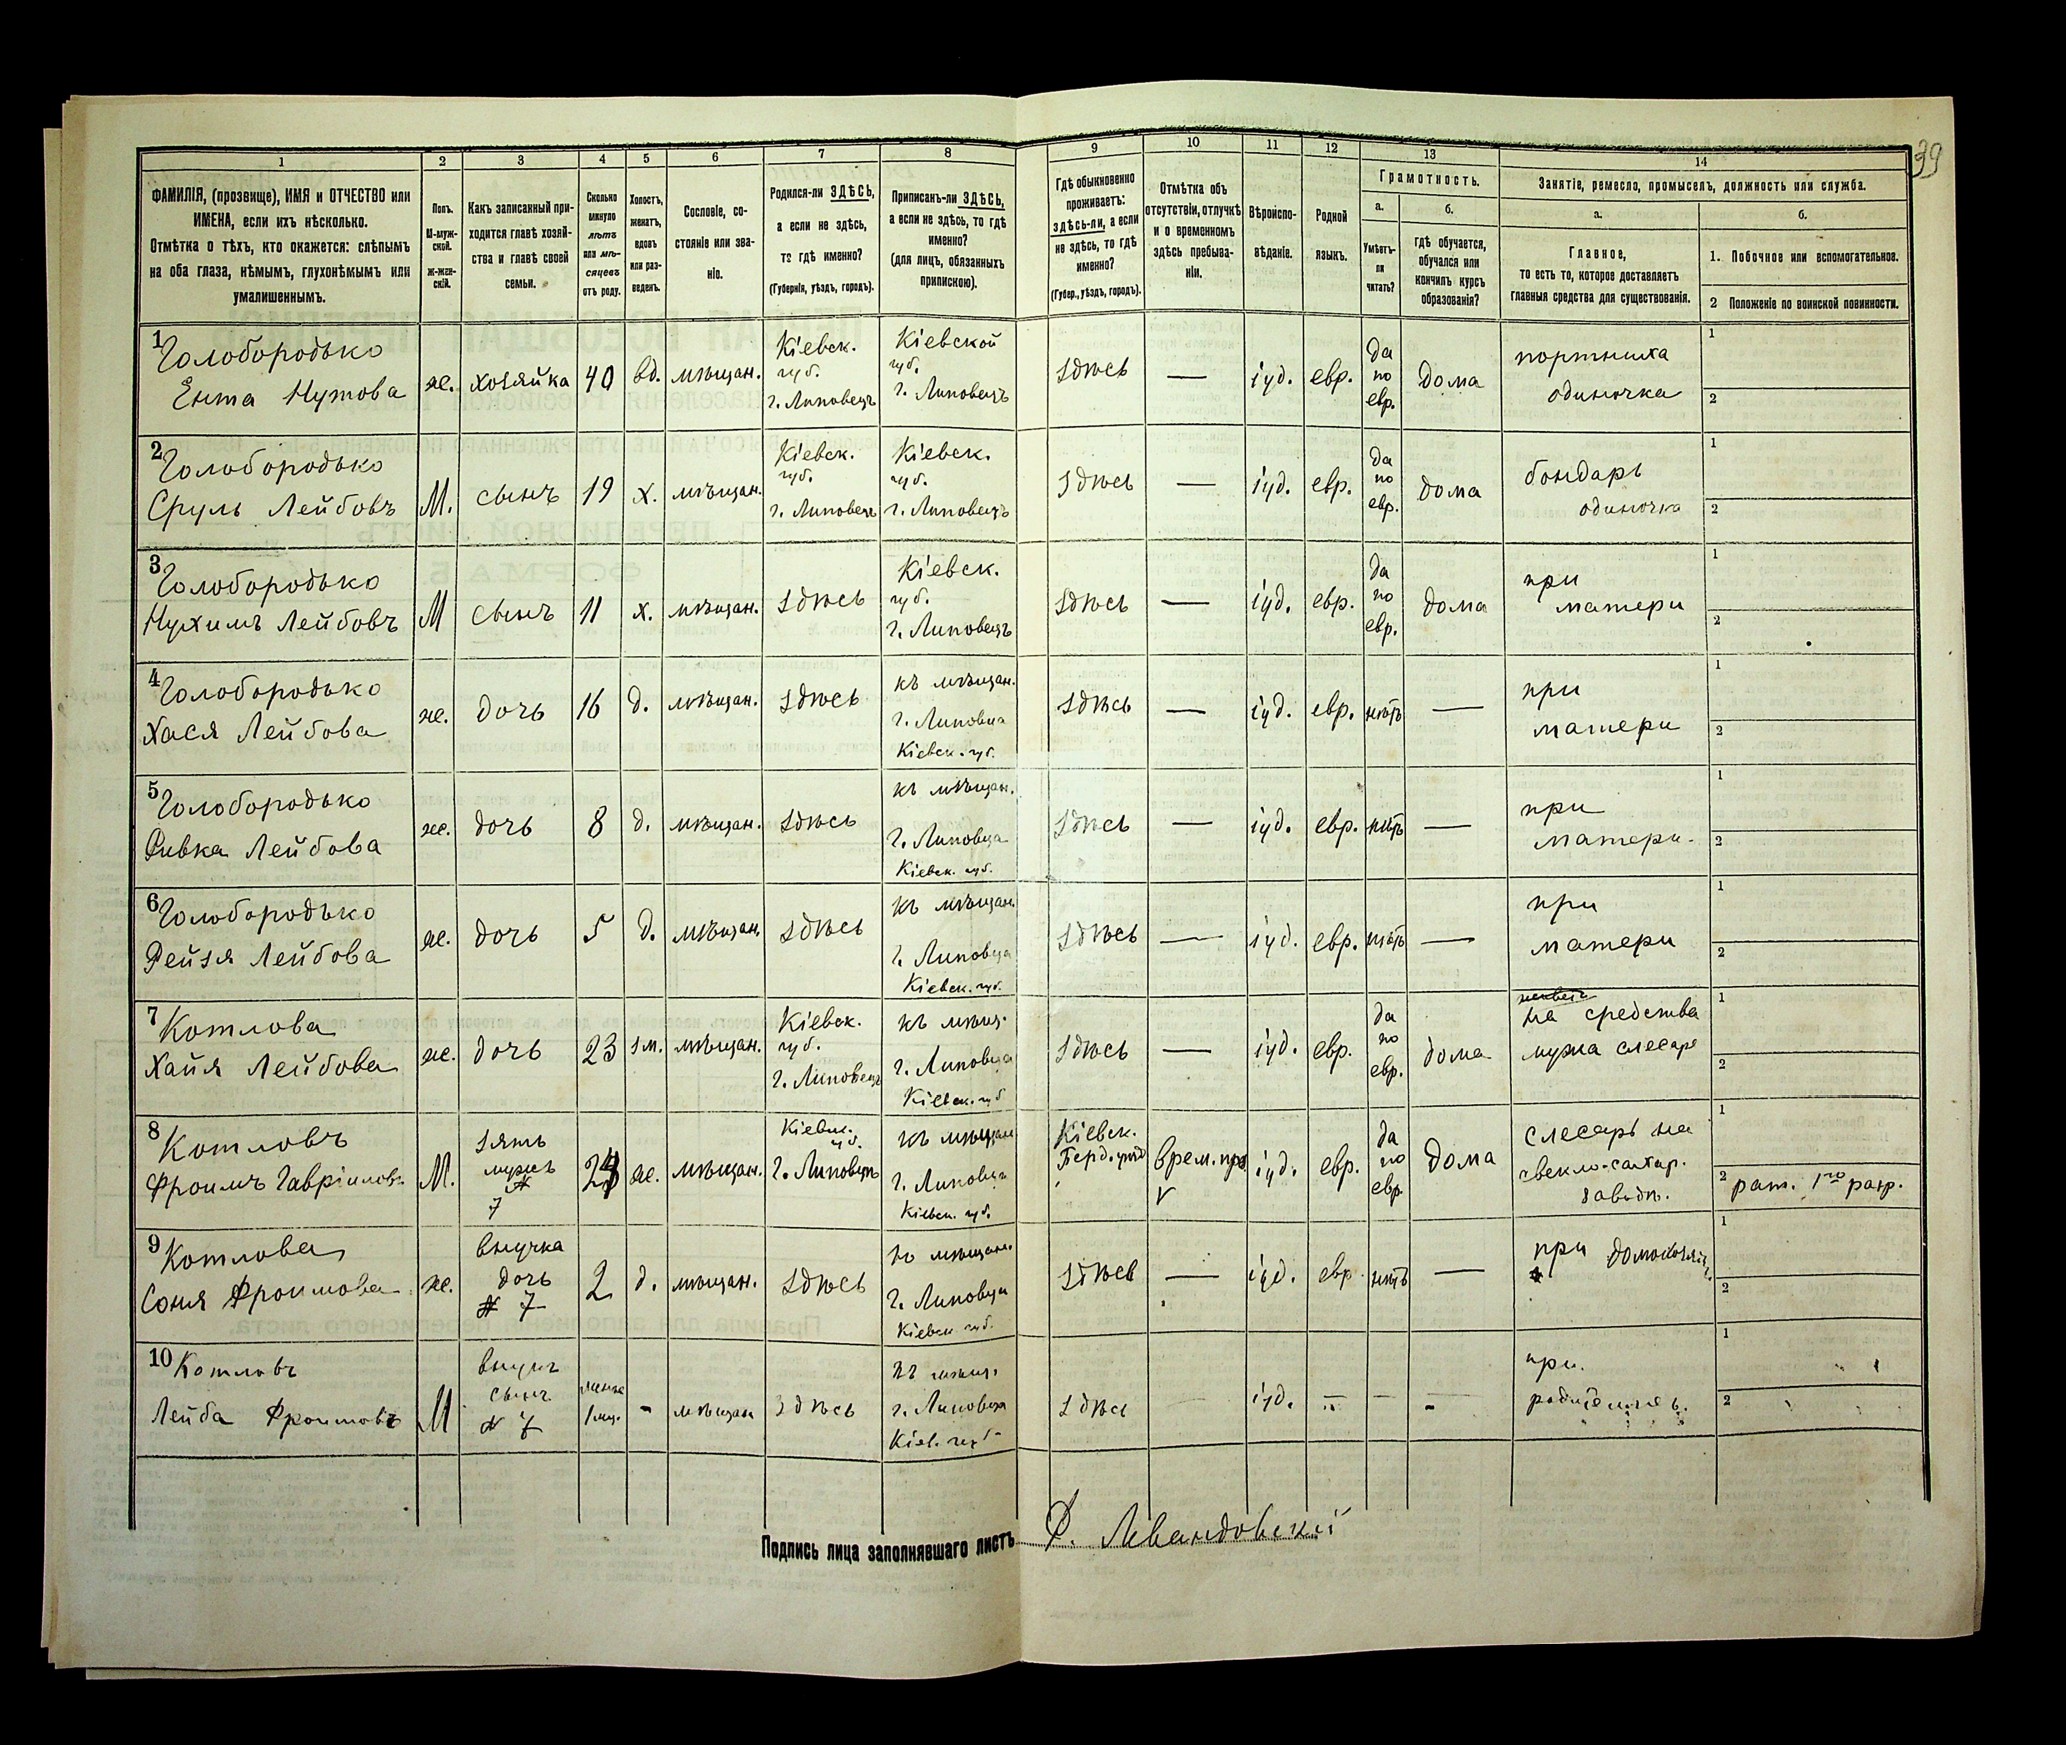 39
1 2 3 4 5 6 7 8 9 10 11 12 13 14
ФАМИЛІЯ, (прозвище), ИМЯ и ОТЧЕСТВО или
ИМЕНА, если ихъ нѣсколько.
Отмѣтка о тѣхъ, кто окажется: слѣпымъ
на оба глаза, нѣмымъ, глухонѣмымъ или
умалишеннымъ.
Полъ.
М-муж-
ской.
Ж-жен-
скій.
Какъ записанный при-
ходится главѣ хозяй-
ства и главѣ своей
семьи.
Сколько
минуло
лѣтъ
или мѣ-
сяцевъ
отъ роду.
Холостъ,
женатъ,
вдовъ
или раз-
веденъ.
Сословіе, со-
стояніе или зва-
ніе.
Родился-ли ЗДѢСЬ,
а если не здѣсь,
то гдѣ именно?
(Губернія, уѣздъ, городъ).
Приписанъ-ли ЗДѢСЬ,
а если не здѣсь, то гдѣ
именно?
(для лицъ, обязанныхъ
припискою).
Гдѣ обыкновенно
проживаетъ:
здѣсь-ли, а если
не здѣсь, то гдѣ
именно?
(Губер., уѣздъ, городъ).
Отмѣтка объ
отсутствіи, отлучкѣ
и о временномъ
здѣсь пребыва-
ніи.
Вѣроиспо-
вѣданіе.
Родной
языкъ.
Грамотность.
а.
Умѣетъ-
ли
читать?
б.
гдѣ обучается,
обучался или
кончилъ курсъ
образованія?
Занятіе, ремесло, промыселъ, должность или служба.
а.
Главное,
то есть то, которое доставляетъ
главныя средства для существованія.
б.
1. Побочное или вспомогательное.
2 Положеніе по воинской повинности.
1 Голобородько
Ента Нутова
же.
хозяйка
40
вд.
мѣщан.
Кіевск.
губ.
г. Липовецъ
Кіевской
губ.
г. Липовецъ
здѣсь
—
іуд.
евр.
да
по
евр.
дома
портниха
одиночка
1
2
2 Голобородько
Сруль Лейбовъ
М.
сынъ
19
х.
мѣщан.
Кіевск.
губ.
г. Липовецъ
Кіевск.
губ.
г. Липовецъ
здѣсь
—
іуд.
евр.
да
по
евр.
дома
бондарь
одиночка
1
2
3 Голобородько
Нухимъ Лейбовъ
М
сынъ
11
х.
мѣщан.
здѣсь
Кіевск.
губ.
г. Липовецъ
здѣсь
—
іуд.
евр.
да
по
евр.
дома
при
матери
1
2
4 Голобородько
Хася Лейбова
же.
дочь
16
д.
мѣщан.
здѣсь
къ мѣщан.
г. Липовца
Кіевск. губ.
здѣсь
—
іуд.
евр.
нѣтъ
—
при
матери
1
2
5 Голобородько
Ривка Лейбова
же.
дочь
8
д.
мѣщан.
здѣсь
къ мѣщан.
г. Липовца
Кіевск. губ.
здѣсь
—
іуд.
евр.
нѣтъ
—
при
матери.
1
2
6 Голобородько
Рейзя Лейбова
же.
дочь
5
д.
мѣщан.
здѣсь
къ мѣщан.
г. Липовца
Кіевск. губ.
здѣсь
—
іуд.
евр.
нѣтъ
—
при
матери
1
2
7 Котлова
Хайя Лейбова
же.
дочь
23
зм.
мѣщан.
Кіевск.
губ.
г. Липовецъ
къ мѣщ.
г. Липовца
Кіевск. губ
здѣсь
—
іуд.
евр.
да
по
евр.
дома
на средства
мужа слесаря
1
2
8 Котловъ
Фроимъ Гавріиловъ
М.
зять
мужъ
№
7
24
же.
мѣщан.
Кіевск.
губ.
г. Липовецъ
къ мѣщан
г. Липовца
Кіевск. губ.
Кіевск.
Берд. уѣзд
врем. пре
іуд.
евр.
да
по
евр
дома
слесарь на
свекло-сахар.
заводѣ.
1
2 рат. 1го разр.
9 Котлова
Соня Фроимова
же.
внучка
дочь
№ 7
2
д.
мѣщан.
здѣсь
къ мѣщан.
г. Липовца
Кіевск губ.
здѣсь
—
іуд.
евр
нѣтъ
—
при домохозяин.
1
2
10 Котловъ
Лейба Фроимовъ
М
внукъ
сынъ
№ 7
менѣе
1 мѣс.
-
мѣщан
здѣсь
къ мѣщ.
г. Липовца
Кіев. губ
здѣсь
—
іуд.
—
—
—
при.
родителяхъ.
1
2
Подпись лица заполнявшаго листъ Ф. Левандовскій